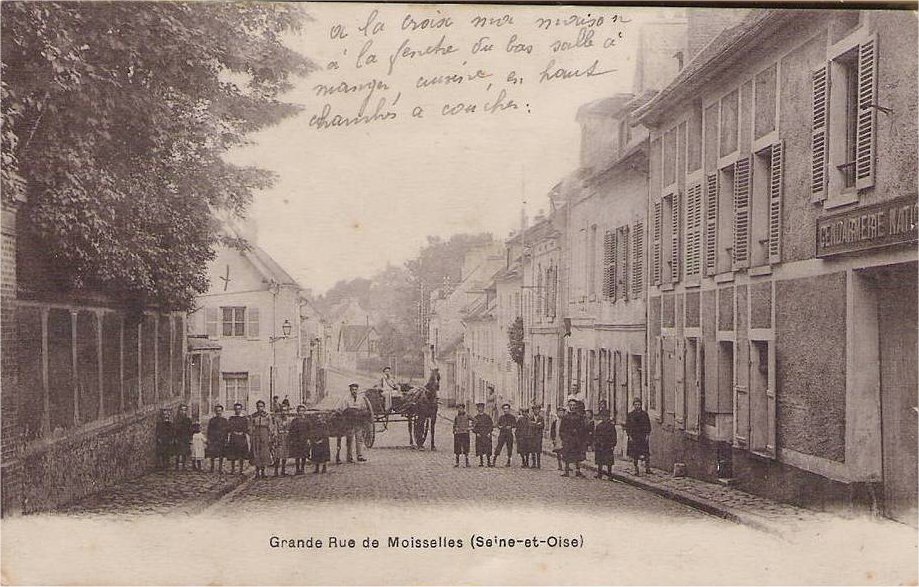 a la croix ma maison
à la fenetre du bas salle à
manger, cuisine, en haut
chambres a coucher.
GENDARMERIE NAT
Grande Rue de Moisselles (Seine-et-Oise)